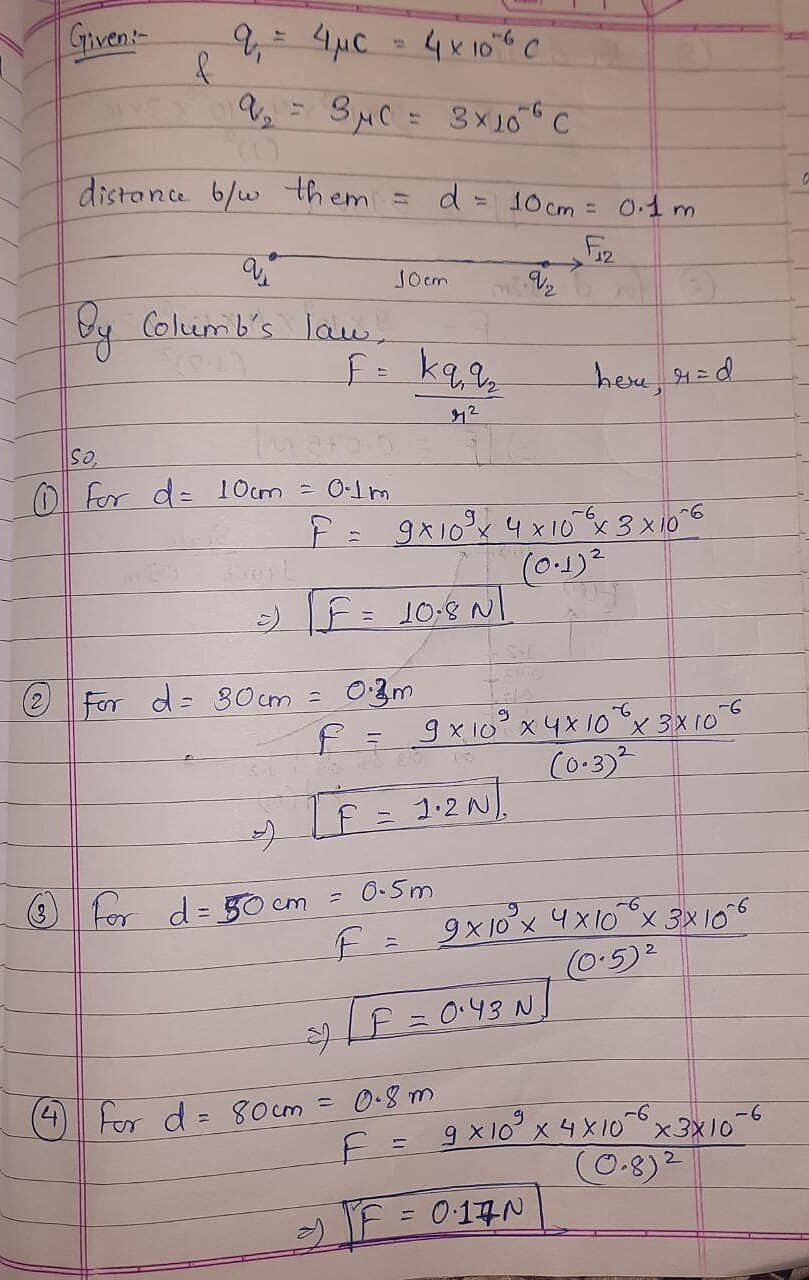 Given:- q₁ = 4μC = 4 × 10⁻⁶ C
&
q₂ = 3μC = 3×10⁻⁶ C
distance b/w them = d = 10cm = 0.1 m
F₁₂
q₁ 10cm q₂
By Columb's law,
F = kq₁q₂ / r² here, r=d
so,
① For d= 10cm = 0.1m
F = 9×10⁹× 4 ×10⁻⁶× 3 ×10⁻⁶ / (0.1)²
=> F = 10.8 N
② For d= 30cm = 0.3m
F = 9×10⁹ ×4×10⁻⁶× 3×10⁻⁶ / (0.3)²
=> F = 1.2 N.
③ For d= 50cm = 0.5m
F = 9×10⁹× 4×10⁻⁶× 3×10⁻⁶ / (0.5)²
=> F = 0.43 N
④ For d = 80cm = 0.8m
F = 9×10⁹ ×4×10⁻⁶ ×3×10⁻⁶ / (0.8)²
=> F = 0.17N